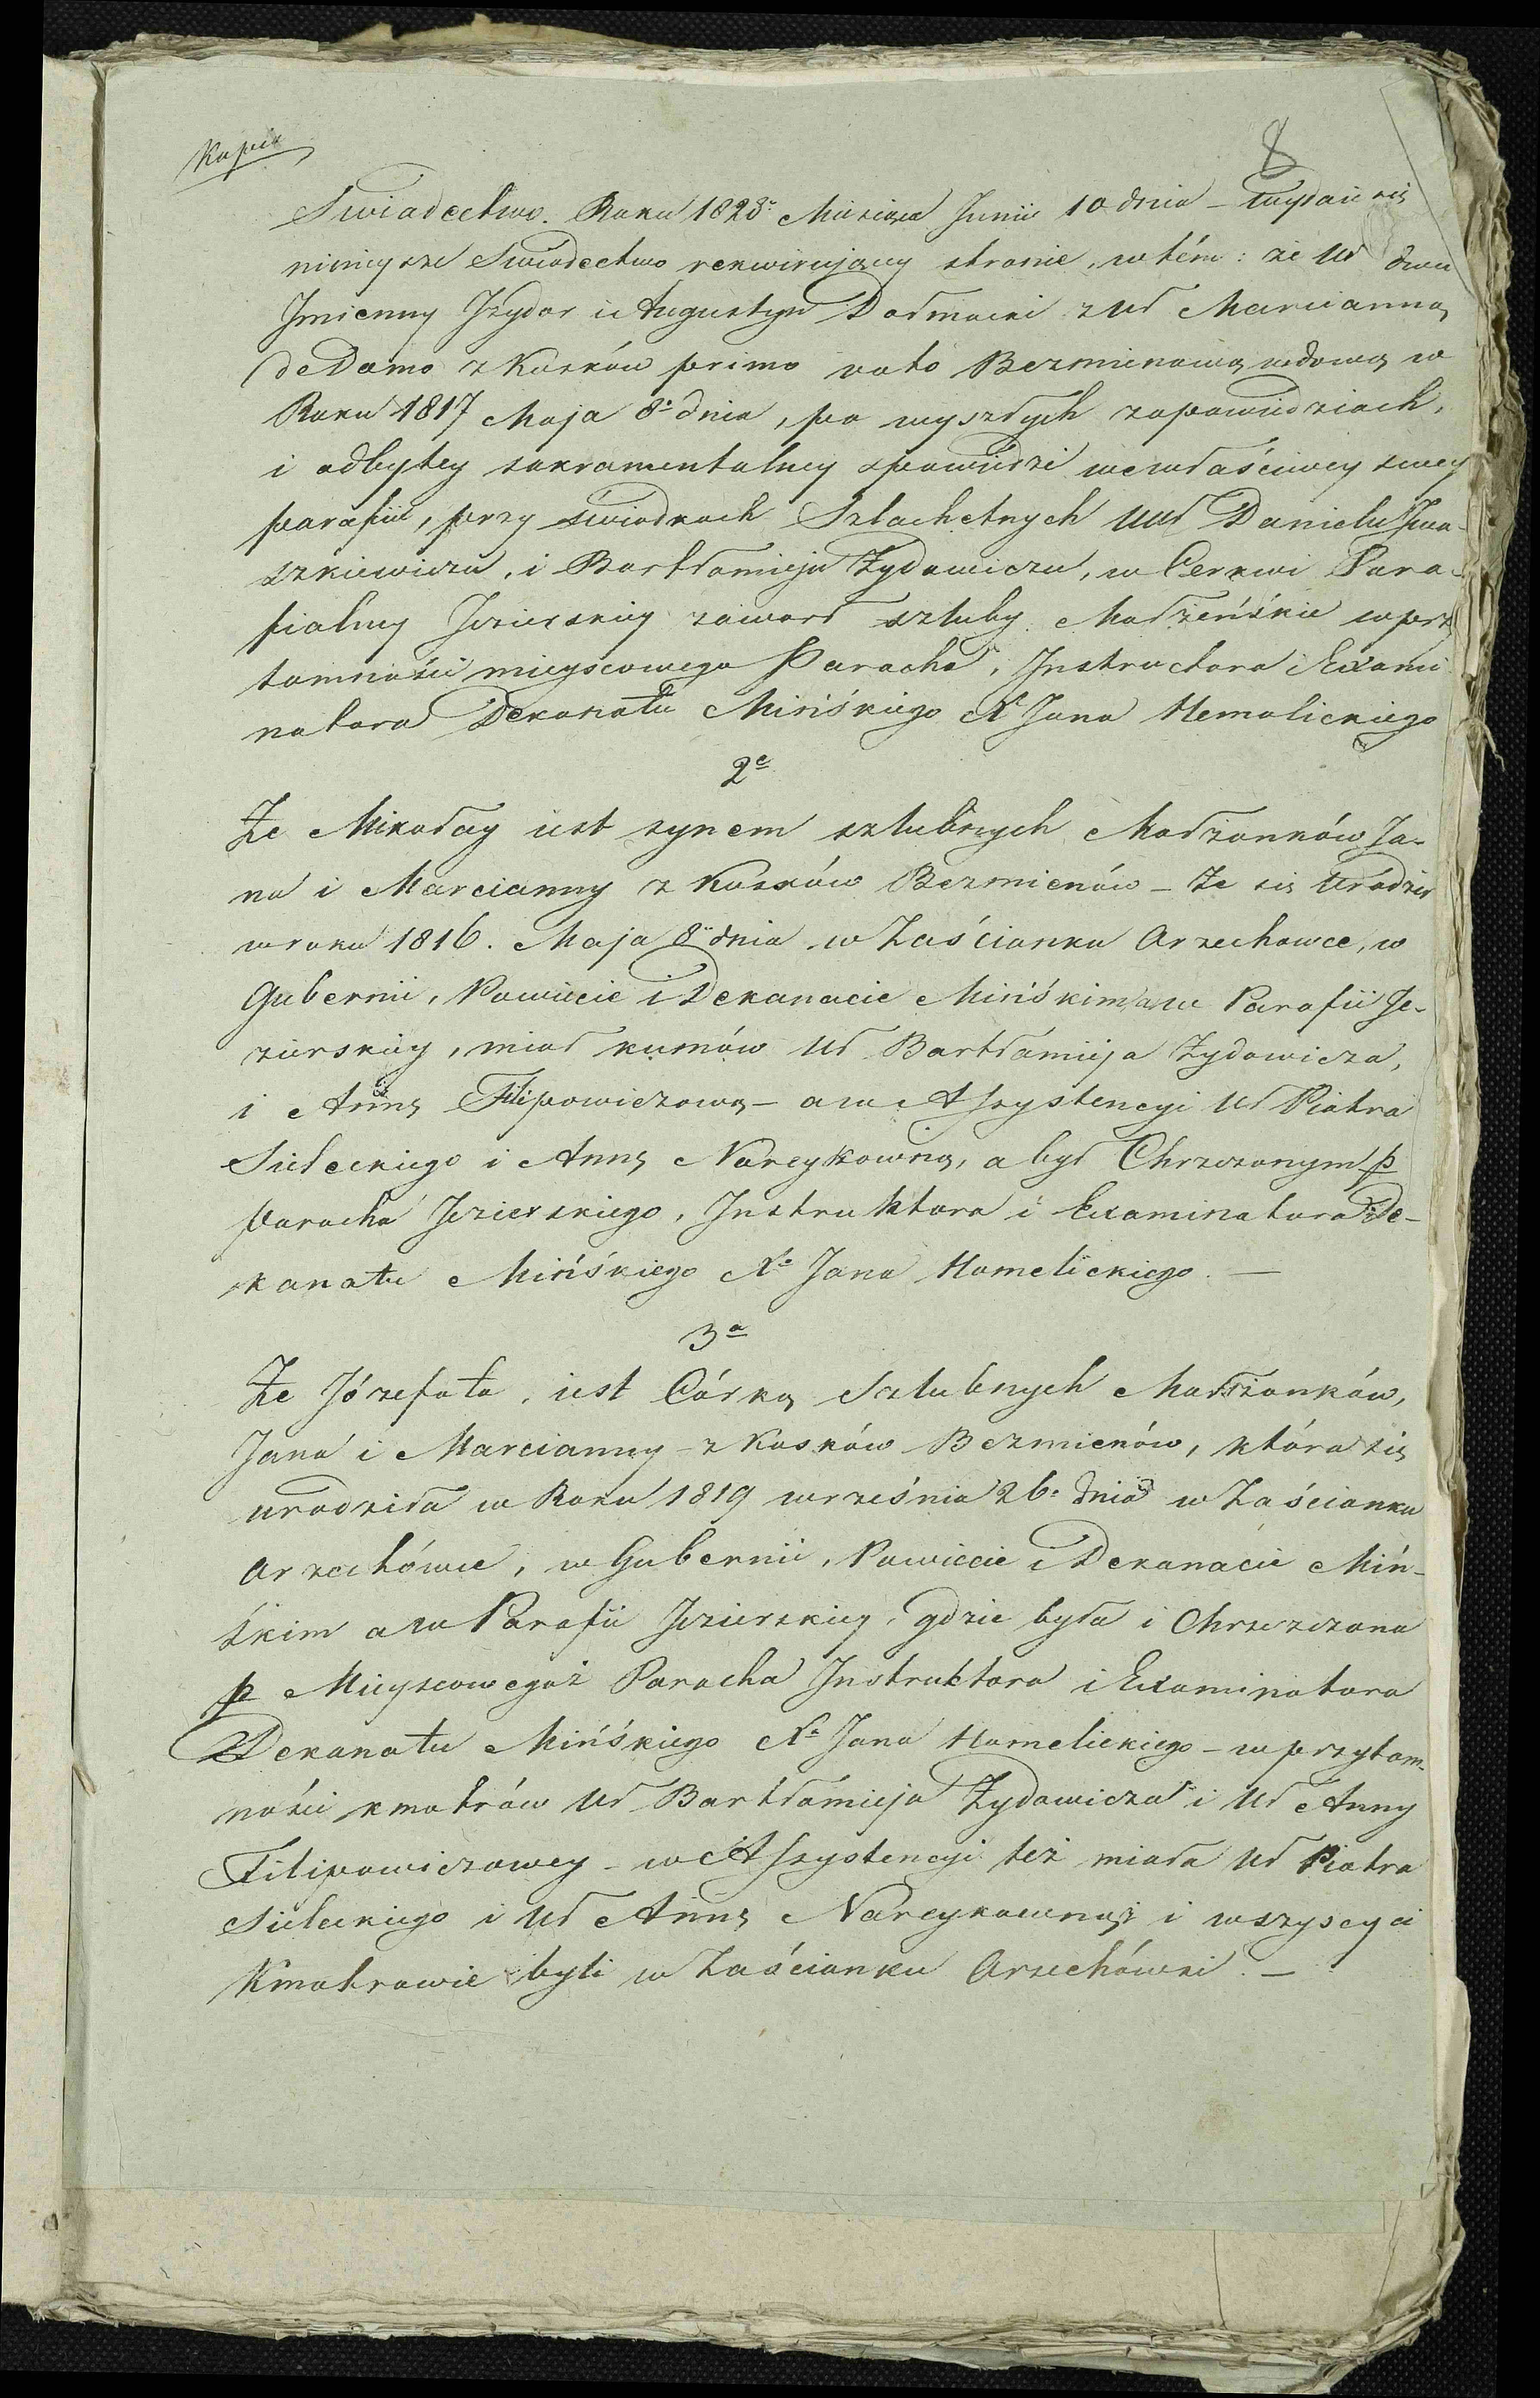 Kopia
8
Swiadectwo. Roku 1828: Miesiąca Junii 10 dnia – wydaie się
ninieysze Swiadectwo rekwiruiącey stronie, w tém: że Uł dwu
Jmienny Jzydor i Augustyn Dołmacki z Uł Marcianną
de Domo z Kosków primo voto Bezmienową wdową w
Roku 1817 Maja 8º dnia, po wyszłych zapowiedziach,
i odbytey sakramentalney spowiedzi we właściwey swey
parafii, przy świadkach Szlachetnych UUł Danielu Jwa-
szkiewiczu, i Bartłomieju Żydowiczu, w Cerkwi Para-
fialney Jezierskiey zawarł szluby Małżeńskie w przy
tomności mieyscowego Parocha, Jnstructora i Exami
natora Dekanatu Mińskiego X Jana Hemalickiego
2e
Że Mikołay iest synem szlubnych Małżonków Ja-
na i Marcianny z Kosków Bezmienów – Że się urodził
w roku 1816. Maja 8º dnia w Zaścianku Orzechowce, w
Gubernii, Powiecie i Dekanacie Mińskim a w Parafii Je-
zierskiey, miał kumów Uł Bartłomieja Żydowicza,
i Annę Filipowiczową – a w Assystencyi Uł Piotra
Sieleckiego i Annę Narcykowną, a był Chrzczonym p
Parocha Jezierskiego, Jnstruktora i Examinatora De-
kanatu Mińskiego Xa Jana Homelickiego. —
3a
Że Józefata, iest Córką Szlubnych Małżonków,
Jana i Marcianny – z Kosków Bezmienów, która się
urodziła w Roku 1819 września 26. dnia w Zaścianku
Orzechówce, w Gubernii, Powiecie i Dekanacie Miń-
skim a w Parafii Jezierskiey, gdzie była i Chrzczona
p Mieyscowegoż Parocha Jnstruktora i Examinatora
Dekanatu Mińskiego Xa Jana Homelickiego – w przytom-
ności kmotrów Uł Bartłomieja Żydowicza i Uł Anny
Filipowiczowey – w Assystencyi też miała Uł Piotra
Sieleckiego i Uł Annę Narcykowną i wszyscy ci
Kmotrowie byli w Zaścianku Orzechówki. —